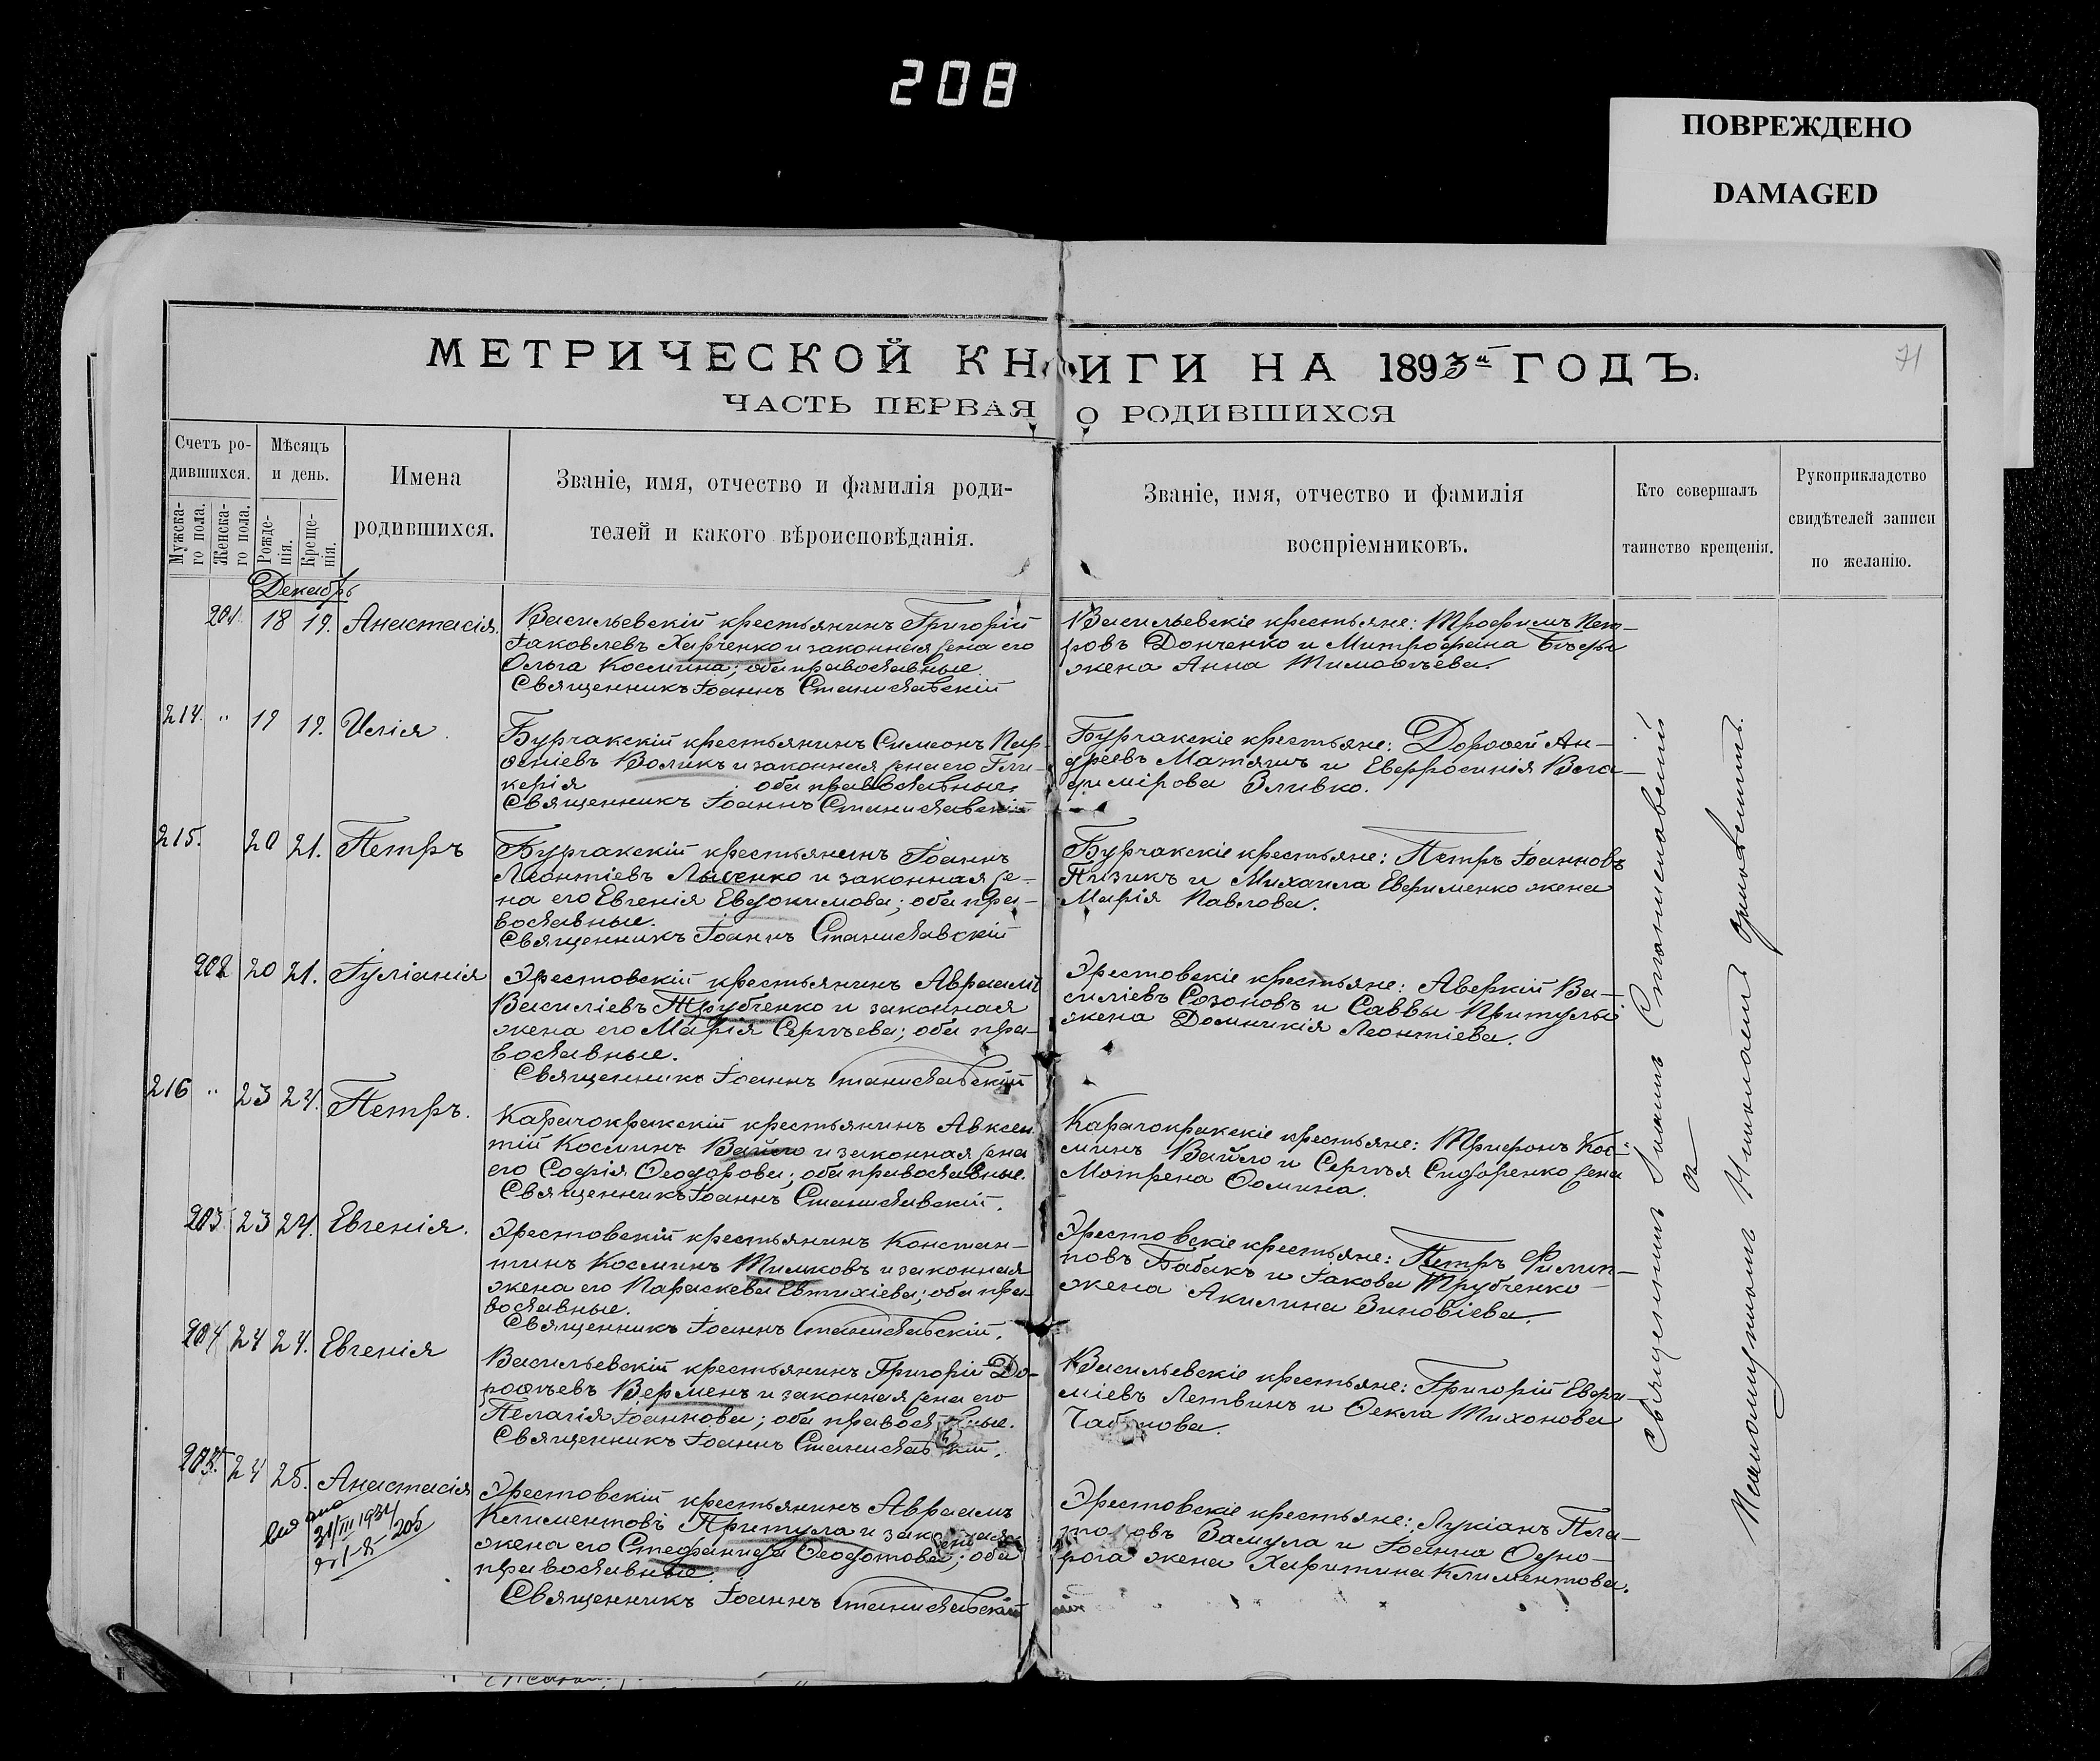 208
ПОВРЕЖДЕНО
DAMAGED
71
МЕТРИЧЕСКОЙ КНИГИ НА 1893й ГОДЪ.
ЧАСТЬ ПЕРВАЯ О РОДИВШИХСЯ
Счетъ ро-
дившихся.
Мужска-
го пола.
Женска-
го пола.
Мѣсяцъ
и день.
Рожде-
нія.
Креще-
нія.
Имена
родившихся.
Званіе, имя, отчество и фамилія роди-
телей и какого вѣроисповѣданія.
Званіе, имя, отчество и фамилія
воспріемниковъ.
Кто совершалъ
таинство крещенія.
Рукоприкладство
свидѣтелей записи
по желанію.
Декабрь
201 18 19. Анастасія.
Васильевскій крестьянинъ Григорій
Іаковлевъ Харченко и законная жена его
Ольга Космина; оба православные.
Священникъ Іоаннъ Станиславскій
Васильевскіе крестьяне: Трофимъ Пет-
ровъ Донченко и Митрофана
жена Анна Тимоѳѣева.
214. " 19 19. Илія
Бурчакскій крестьянинъ Симеонъ Пар-
ѳеніевъ Воликъ и законная жена его Гли-
керія оба православные.
Священникъ Іоаннъ Станиславскій
Бурчакскіе крестьяне: Дороѳей Ан-
дреевъ Матяшъ и Евфросинія Вла-
димірова Зливко.
215. 20 21. Петръ
Бурчакскій крестьянинъ Іоаннъ
Леонтіевъ Лысенко и законная же-
на его Евгенія Евдокимова; оба пра-
вославные.
Священникъ Іоаннъ Станиславскій
Бурчакскіе крестьяне: Петръ Іоанновъ
Пизикъ и Михаила Евфименко жена
Марія Павлова.
202 20 21. Іуліанія
Эрестовскій крестьянинъ Авраамъ
Василіевъ Трубченко и законная
жена его Марія Сергѣева; оба пра-
вославные.
Священникъ Іоаннъ Станиславскій
Эрестовскіе крестьяне: Аверкій Ва-
силіевъ Созоновъ и Саввы Притулы
жена Домникія Леонтіева.
216 " 23 24. Петръ.
Карачокракскій крестьянинъ Авксен-
тій Косминъ Вайло и законная жена
его Софія Ѳеодорова; оба православные.
Священникъ Іоаннъ Станиславскій.
Карачокракскіе крестьяне: Трифонъ Кос-
минъ Вайло и Сергѣя Сидоренко жена
Мотрена Ѳомина.
203 23 24. Евгенія.
Эрестовскій крестьянинъ Констан-
тинъ Косминъ Тимковъ и законная
жена его Параскева Евтихіева; оба пра-
вославные.
Священникъ Іоаннъ Станиславскій.
Эрестовскіе крестьяне: Петръ Филип-
повъ Бабакъ и Іакова Трубченко
жена Акилина Зиновіева.
204 24 24. Евгенія
Васильевскій крестьянинъ Григорій До-
роѳѣевъ Верменъ и законная жена его
Пелагія Іоаннова; оба православные.
Священникъ Іоаннъ Станиславскій.
Васильевскіе крестьяне: Григорій Евфи-
міевъ Летвинъ и Ѳекла Тихонова
205. 24 25. Анастасія
31/III 1934
205
Эрестовскій крестьянинъ Авраамъ
Климентовъ Притула и законная
жена его Стефанида Ѳеодотова; оба
православные.
Священникъ Іоаннъ Станиславскій
Эрестовскіе крестьяне: Лукіанъ Пла-
тоновъ Замула и Іоанна Одно-
рога жена Харитина Климентова.
Священникъ Іоаннъ Станиславскій
съ
Псаломщикомъ Николаемъ